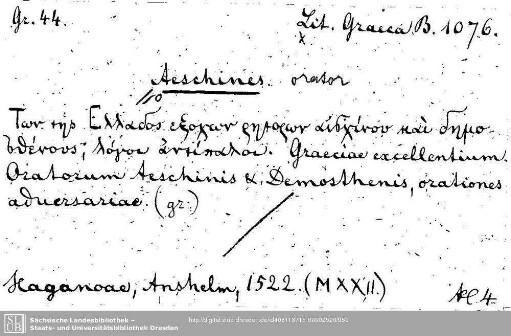 Gr. 44.
Lit. Graeca B. 1076.
Aeschines orator
Των της Ελλαδος εξοχων ρητορων αισχίνου και δημο-
σθένους, λόγοι αντίπαλοι. Graeciae excellentium
Oratorum Aeschinis & Demosthenis, orationes
adversariae. (gr.)
Haganoae, Anshelm, 1522. (MXXII.)
4.
Sächsische Landesbibliothek –
Staats- und Universitätsbibliothek Dresden